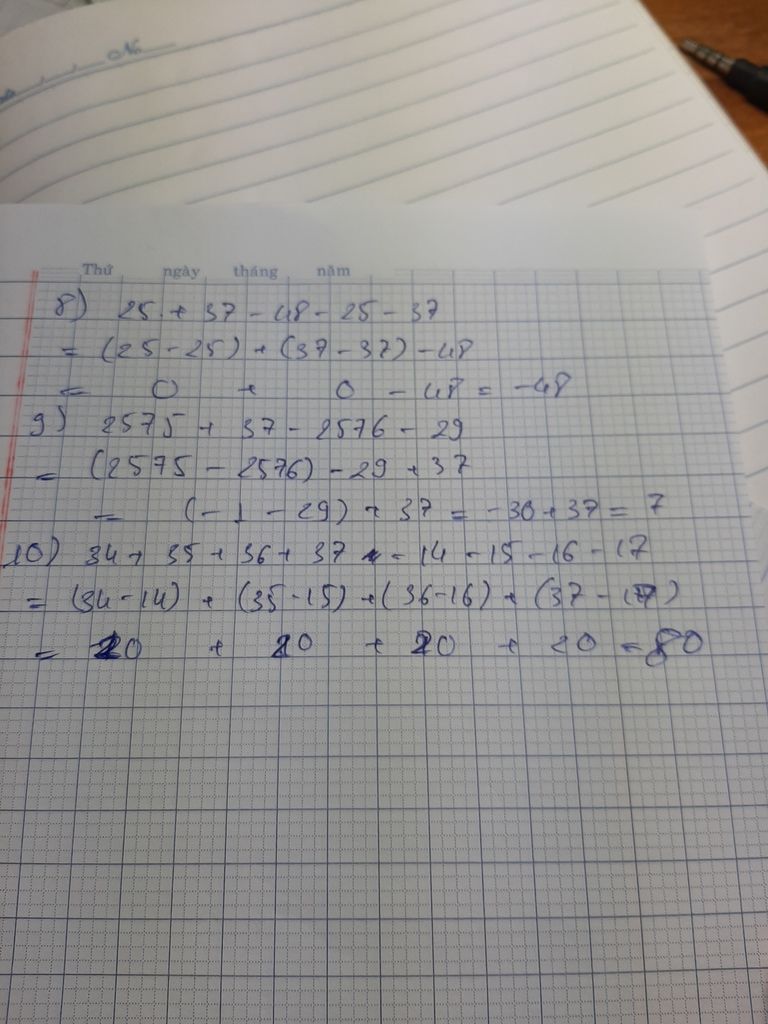 No
Thứ ngày tháng năm
8) 25 + 37 - 48 - 25 - 37
= (25 - 25) + (37 - 37) - 48
= 0 + 0 - 48 = -48
9) 2575 + 37 - 2576 - 29
= (2575 - 2576) - 29 + 37
= (-1 - 29) + 37 = -30 + 37 = 7
10) 34 + 35 + 36 + 37 - 14 - 15 - 16 - 17
= (34 - 14) + (35 - 15) + (36 - 16) + (37 - 17)
= 20 + 20 + 20 + 20 = 80